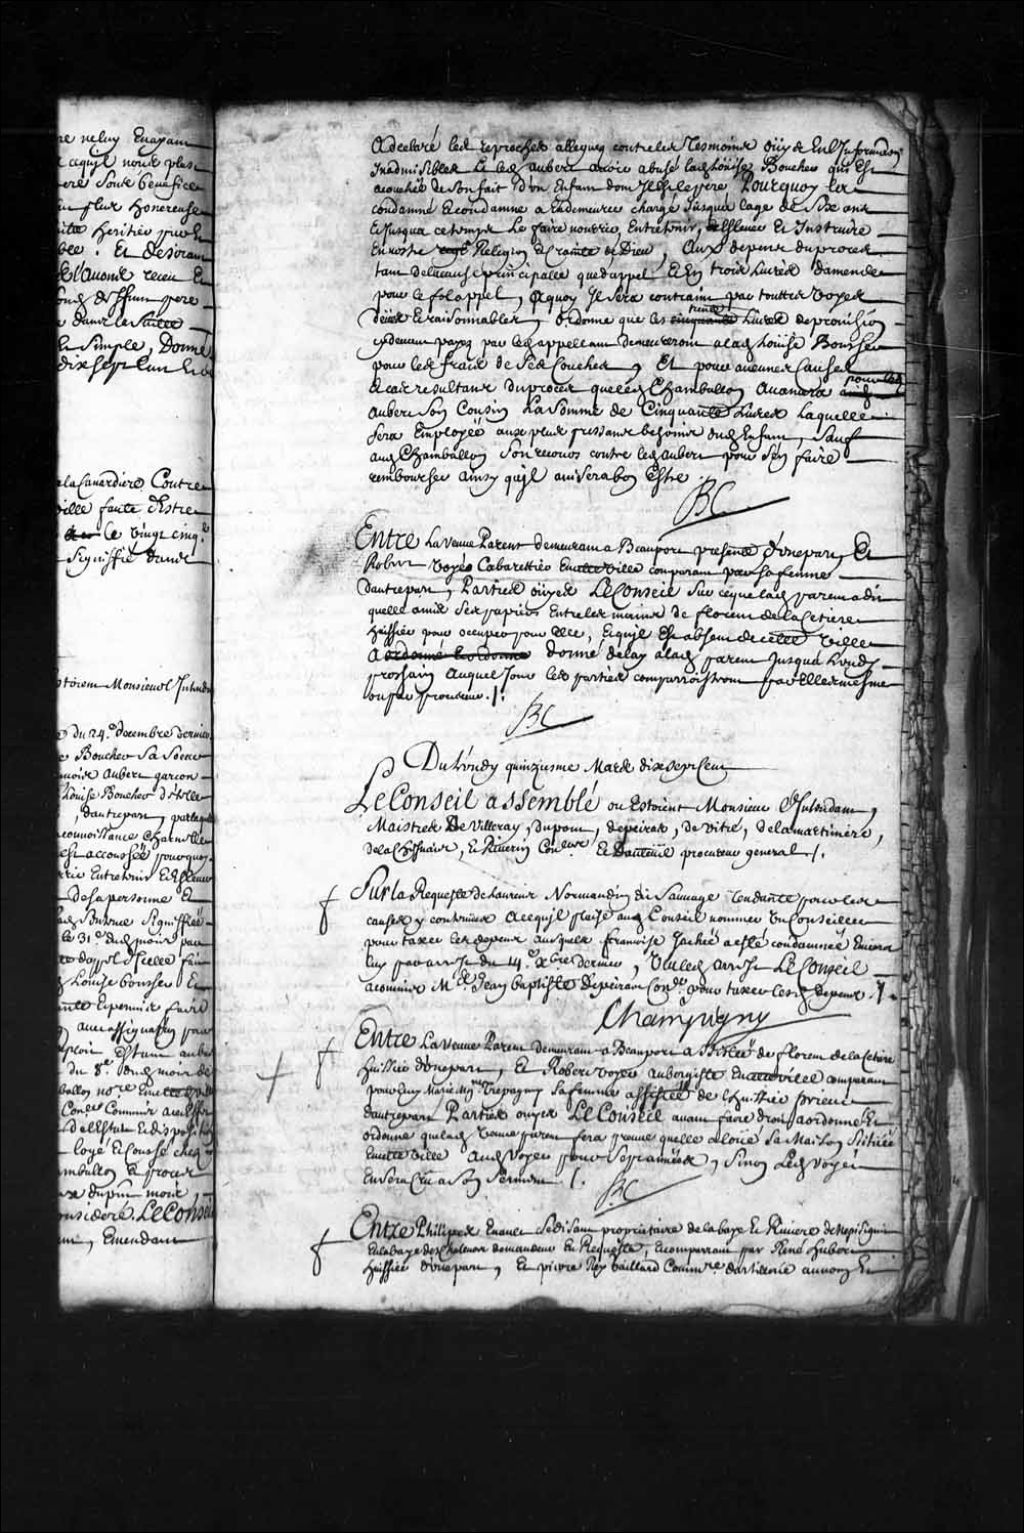 re neluy Enayant
ceqūjl nous plais
Sous benefice
flux honereuse
heritier pur &
Et desirant
dans la Suitte
Simple, Donné
dixsept Cun
dela Canardiere Contre
ville faute dEstre
le Vingt cinqe
Signiffié dans
Estoient Monsieur l'Intend
du 24.e decembre dernier
Boucher Sa Soeur
Aubert garçon
Louise Boucher d'Elle
dautrepart, par laq
connoissance charnelle
est accouchée pourquoy
Entretenir Et Eslever
de sa personne Et
Signiffiée
le 31.e dud mois par
dappel d'Icelle fait
Louise bousser Et
Et permis faire
avec assignation pour
du 8.e dud mois de
Coner Commis
ballon & procur
du pnt mois,
considéré. Le Conseil
, Emendant
A declaré les reproches alleguez contre les Tesmoins oüys En l'Information
Inadmisibles Et led aubert avoir abusé lad Louise Boucher qui Est
acouchée de Son fait D'un Enfant dont Jl Est le pere Pourquoy l'a
condamné Et condamne a En demeurer chargé Jusqu'a lage de Six ans
Et Jusqu'a ce temps Le faire nourrir, Entretenir, Eslever Et Instruire
En nostre Religion Et Crainte de Dieu, Aux depens du procez
tant de la cause principalle que dappel Et En trois Livres damende
pour le fol appel, A quoy Jl Sera contraint par touttes Voyes
deües Et raisonnables, Ordonne que les trente cinquante Livres de provision
cydevant payez par led appellant demeureront a lad Louise Bousser
pour les frais de Ses Couches, Et pour aucunes causes
Et cas resultans du procez que led Chamballon Avancera pour led aud
Aubert Son Cousin La Somme de Cinquante Livres Laquelle
Sera Employée aux plus pressans besoins dud Enfant, Sauf
aud Chamballon Son recours contre led aubert pour S'en faire
rembourser ainsy qu'jl avisera bon Estre
BC
Entre La Veuve Parent demeurant a Beauport presente d'unepart, Et
Robert Voyer Cabarettier En cette Ville comparant par Sa femme
dautrepart, Parties oüyes Le Conseil Sur ce que lad parent a dit
quelle a mis Ses papiers Entre les mains de florent de la Cetiere
huissier pour occuper pour Elle, Et qu'jl Est absent de cette Ville
A ordonné Et ordonne donné delay a lad parent Jusqu'a Lundy
prochain Auquel Jour les parties comparroistront par Ellesmesme
ou par procureur ./.
BC
Du Lundy quinziesme Mars dixsept Cent
Le Conseil assemblé ou Estoient Monsieur l'Intendant,
Maistres De Villeray, dupont, depeiras, de Vitré, de la martiniere,
de la Chesnaie, Et Riverin Coners Et Dauteüil procureur general ./.
Sur la Requeste de Laurent Normandin dit Sauvage Tendante pour les
causes y contenües A ce qu'jl plaise aud Conseil nommer Un Conseiller
pour taxer les depens ausquels françoise Jachée a esté condamnée Envers
luy par arrest du 14.e xbre dernier, Veu led arrest Le Conseil
a commis M.e Jean baptiste Depeiras Coner pour taxer lesd depens ./.
Champigny
Entre La Veuve Parent demeurant a Beauport assistée de florent de la Cetiere
huissier d'unepart, Et Robert Voyer Aubergiste En cette Ville comparant
pour luy Marie Mgne Trepagny Sa femme assistée de l'huissier prieur
dautrepart Parties ouyes Le Conseil avant faire droit a ordonné Et
ordonne que lad Veuve parent fera preuve quelle a loüé Sa Maison Scitüée
En cette Ville Aud Voyer pour Sept années, Sinon Led Voyer
En Sera Crû a Son Serment ./.
BC
Entre Philipes Enault Se disant proprietaire de la baye Et Riviere de Nepisiguit
En la baye des Chaleurs demandeur En Requeste, Et comparant par René hubert
huissier d'unepart, Et pierre Rey Gaillard Commre dartillerie au nom Et